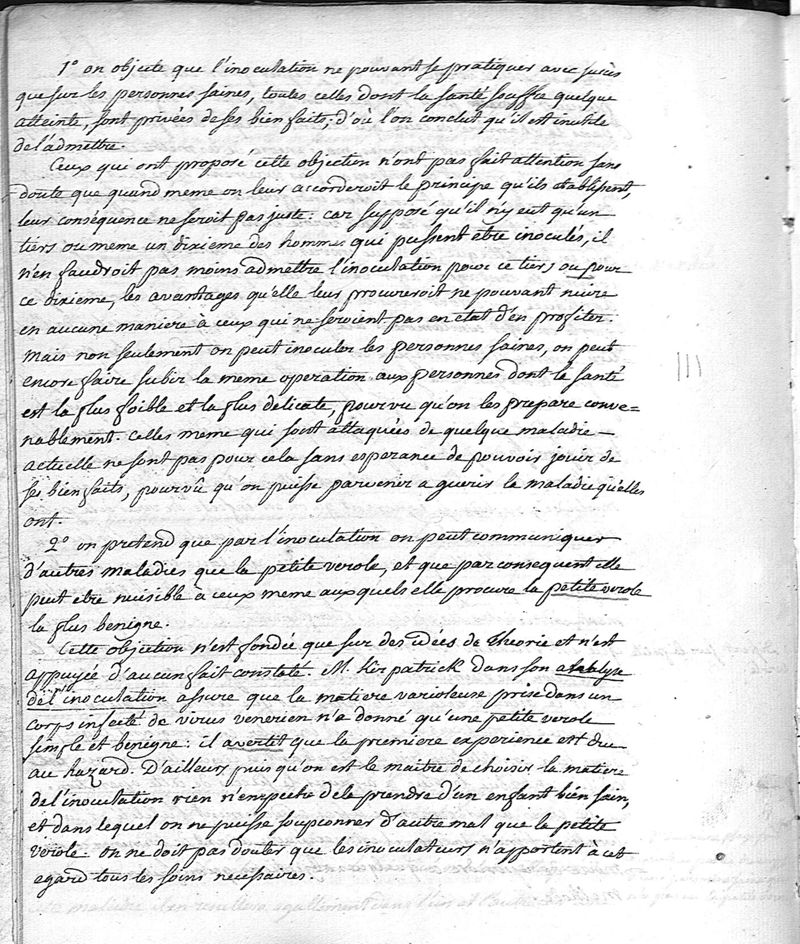 1° on objecte que l'inoculation ne pouvant se pratiquer avec succès
que sur les personnes saines, toutes celles dont la santé souffre quelque
atteinte, sont privées de ses bienfaits; d'où l'on conclut qu'il est inutile
de l'admettre.
Ceux qui ont proposé cette objection n'ont pas fait attention sans
doute que quand meme on leur accorderoit le principe qu'ils établissent,
leur conséquence ne seroit pas juste: car supposé qu'il n'y eut qu'un
tiers ou meme un dixieme des hommes qui pussent etre inoculés, il
n'en faudroit pas moins admettre l'inoculation pour ce tiers ou pour
ce dixieme, les avantages qu'elle leur procureroit ne pouvant nuire
en aucune maniere à ceux qui ne seroient pas en etat d'en profiter.
Mais non seulement on peut inoculer les personnes saines, on peut
encore faire subir la meme operation aux personnes dont la santé
est la plus foible et la plus delicate, pourvu qu'on les prepare conve=
nablement. Celles meme qui sont attaquées de quelque maladie
actuelle ne sont pas pour cela sans esperance de pouvoir jouir de
ses bienfaits, pourvû qu'on puisse parvenir a guerir la maladie qu'elles
ont.
2° on pretend que par l'inoculation on peut communiquer
d'autres maladies que la petite verole, et que par consequent elle
peut etre nuisible à ceux meme auxquels elle procure la petite verole
la plus benigne.
Cette objection n'est fondée que sur des idées de Theorie et n'est
appuyée d'aucun fait constaté. M. Kirpatrick dans son analyse
de l'inoculation assure que la matiere varioleuse prise dans un
corps infecté de virus venerien n'a donné qu'une petite verole
simple et benigne: il avertit que la premiere experience est due
au hazard. D'ailleurs puis qu'on est le maitre de choisir la matiere
de l'inoculation rien n'empeche de la prendre d'un enfant bien sain,
et dans lequel on ne puisse soupçonner d'autre mal que la petite
verole. on ne doit pas douter que les inoculateurs n'apportent à cet
egard tous les soins necessaires.